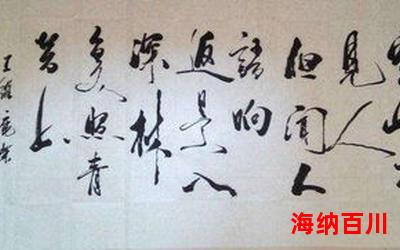 見人
但聞人
語响
返景入
深林
復照青
苔上
王維鹿柴
海纳百川